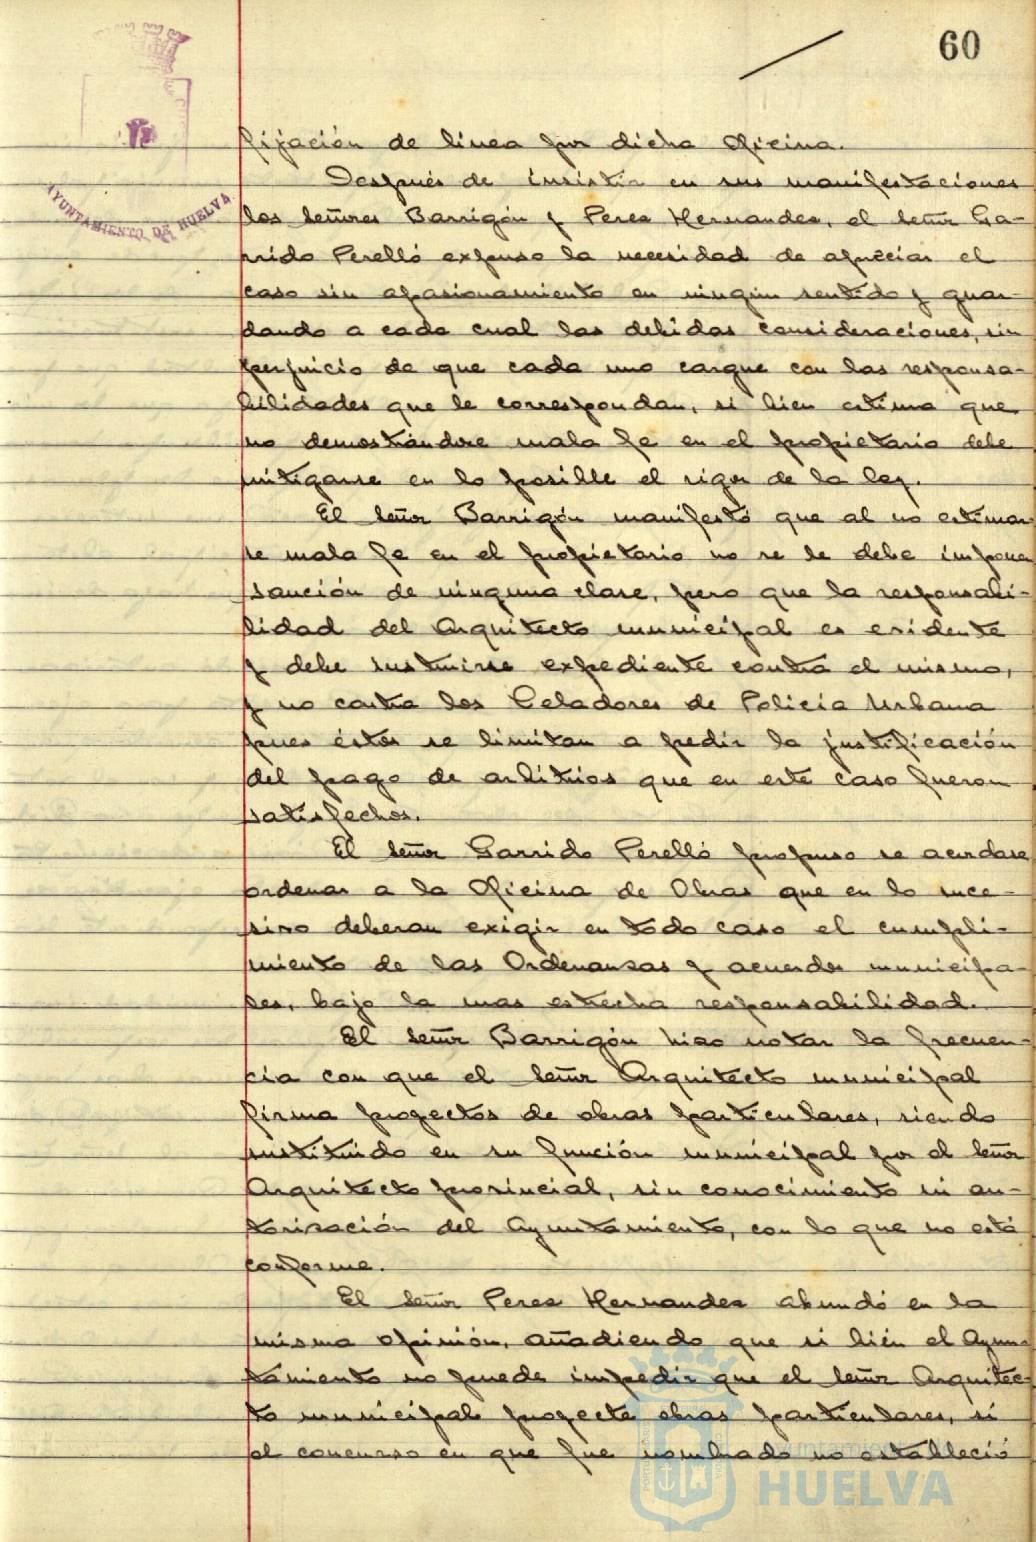 60
AYUNTAMIENTO DE HUELVA
fijación de linea por dicha Oficina.
Después de insistir en sus manifestaciones
los señores Barrigón y Perez Hernandez, el señor Ga-
rrido Perelló expuso la necesidad de apreciar el
caso sin apasionamiento en ningún sentido y guar-
dando a cada cual las debidas consideraciones, sin
perjuicio de que cada uno cargue con las responsa-
bilidades que le correspondan, si bien estima que
no demostrándose mala fe en el propietario debe
mitigarse en lo posible el rigor de la ley.
El señor Barrigón manifestó que al no estimar-
se mala fe en el propietario no se le debe imponer
sanción de ninguna clase, pero que la responsabi-
lidad del Arquitecto municipal es evidente
y debe instruirse expediente contra el mismo,
y no contra los Celadores de Policía Urbana
pues éstos se limitan a pedir la justificación
del pago de arbitrios que en este caso fueron
satisfechos.
El señor Garrido Perelló propuso se acordase
ordenar a la Oficina de Obras que en lo suce-
sivo deberan exigir en todo caso el cumpli-
miento de las Ordenanzas y acuerdos municipa-
les, bajo la mas estrecha responsabilidad.
El señor Barrigón hizo notar la frecuen-
cia con que el señor Arquitecto municipal
firma proyectos de obras particulares, siendo
sustituido en su función municipal por el señor
Arquitecto provincial, sin conocimiento ni au-
torización del Ayuntamiento, con lo que no está
conforme.
El señor Perez Hernandez abundó en la
misma opinión, añadiendo que si bién el Ayun-
tamiento no puede impedir que el señor Arquitec-
to municipal proyecte obras particulares, si
el concurso en que fue nombrado no estableció
Ayuntamiento de
HUELVA